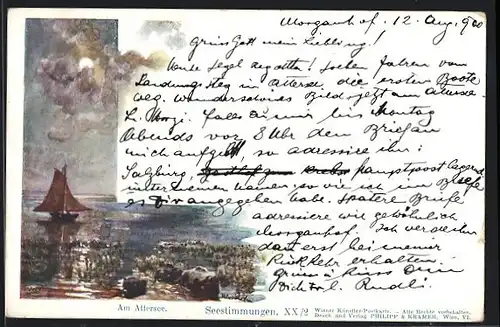 Morganhof. 12. Aug. 900
Grüss Gott mein Liebling!
Heute Segel regatta! Soeben fahren vom
Landungssteg in Attersee die ersten Boote
weg. Wunderschönes Bild jetzt am Attersee.
L. Falls Du mir bis Montag
Abends vor 8 Uhr den Brief an
mich aufgibst so adressire ihn:
Salzburg, hauptpost lagernd
unter meinem Namen, so wie ich im Briefe
es Dir angegeben habe. Spätere Briefe
adressiere wie gewöhnlich
Morganhof. Ich werde ihn
dann erst bei meiner
Rückkehr erhalten.
Grüsse u. küsse Dein
Dich Rudli.
Am Attersee.
Seestimmungen. XX/2
Wiener Künstler-Postkarte. — Alle Rechte vorbehalten.
Druck und Verlag PHILIPP & KRAMER, Wien, VI.